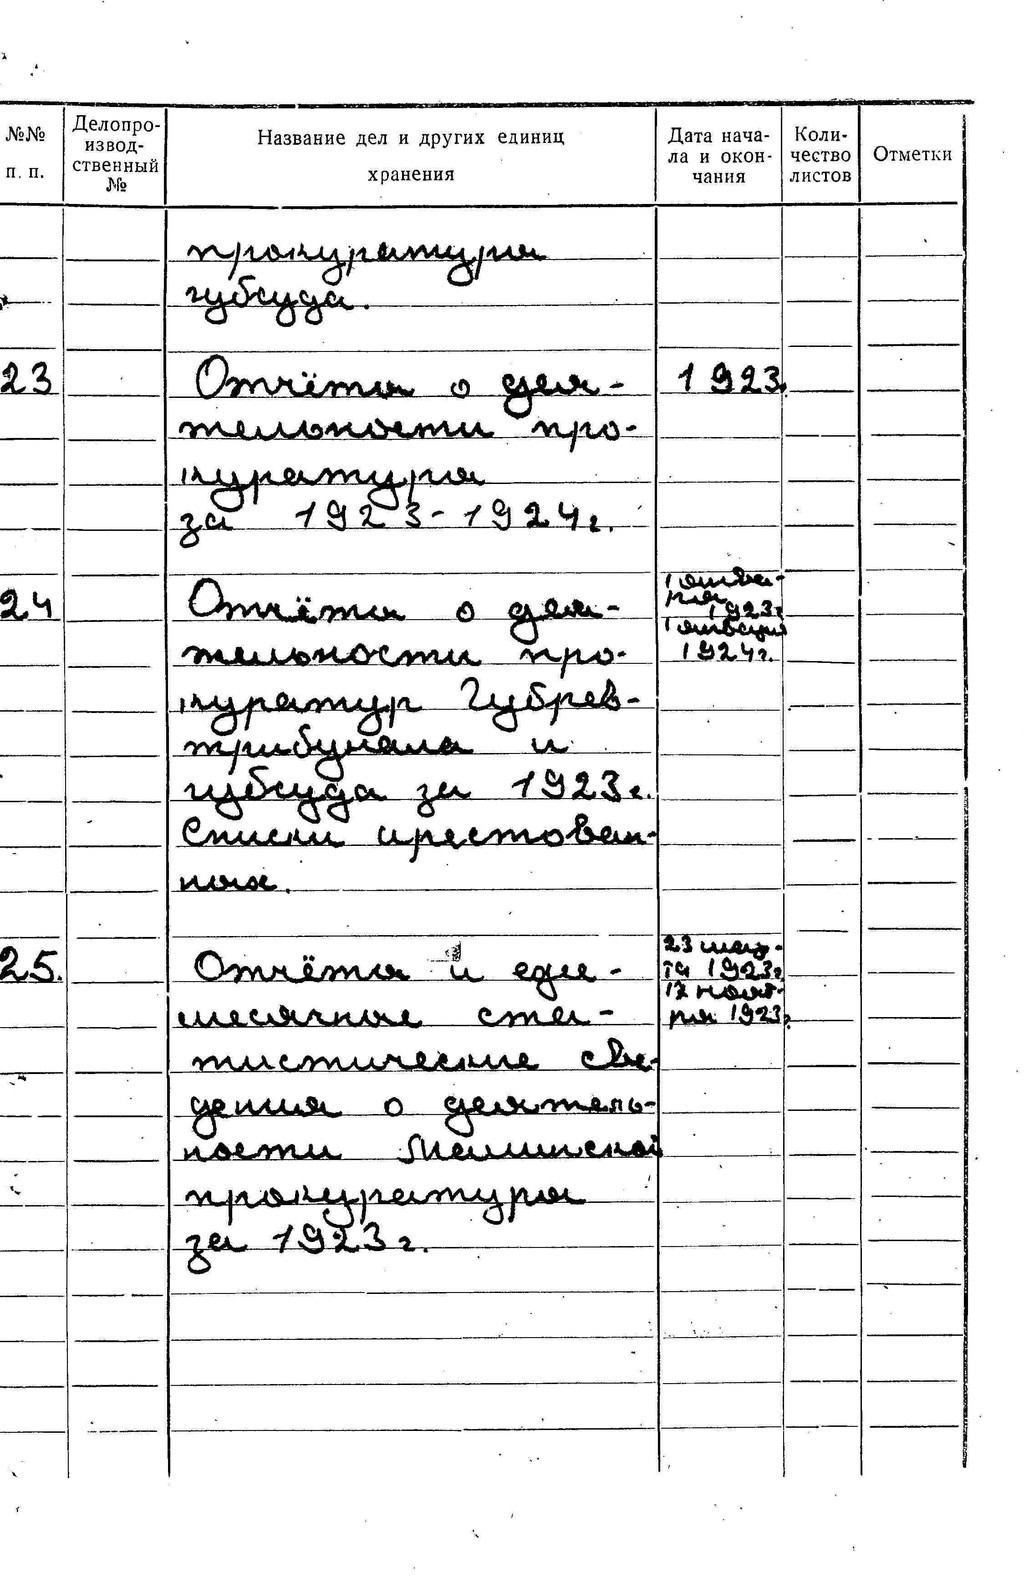 №№ п. п.
Делопро-
извод-
ственный
№
Название дел и других единиц
хранения
Дата нача-
ла и окон-
чания
Коли-
чество
листов
Отметки
прокуратуры
губсуда.
23 Отчёты о дея- 1923.
тельности про-
куратуры
за 1923-1924г.
24 Отчёты о дея-
тельности про-
куратур Губрев-
трибунала и
губсуда за 1923г.
Списки арестован-
ных.
1 октяб-
ря
1923г
1 октября
1924г.
25. Отчёты и еже-
месячные ста-
тистические све-
дения о деятель-
ности
прокуратуры
за 1923г.
23 мар-
та 1923г
17 нояб-
ря 1923г.